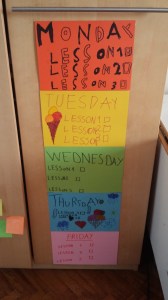 MONDAY
LESSON 1 □
LESSON 2 □
LESSON 3 □
TUESDAY
LESSON 1 □
LESSON 2 □
LESSON 3 □
WEDNESDAY
LESSON 1 □
LESSON 2 □
LESSON 3 □
THURSDAY
FRIDAY
LESSON 1 □
LESSON 2 □
LESSON 3 □